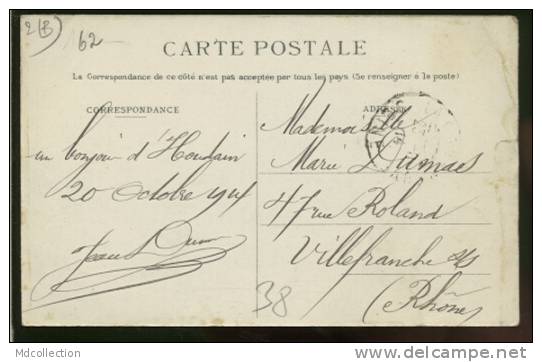 2(B)
62
CARTE POSTALE
La Correspondance de ce côté n'est pas acceptée par tous les pays (Se renseigner à la poste)
CORRESPONDANCE
un bonjour d'Houdain
20 Octobre 1914
ADRESSE
Mademoiselle
Marie Dumas
47 rue Roland
Villefranche s/s
(Rhône)
38
MDcollection
http://www.delcampe.net